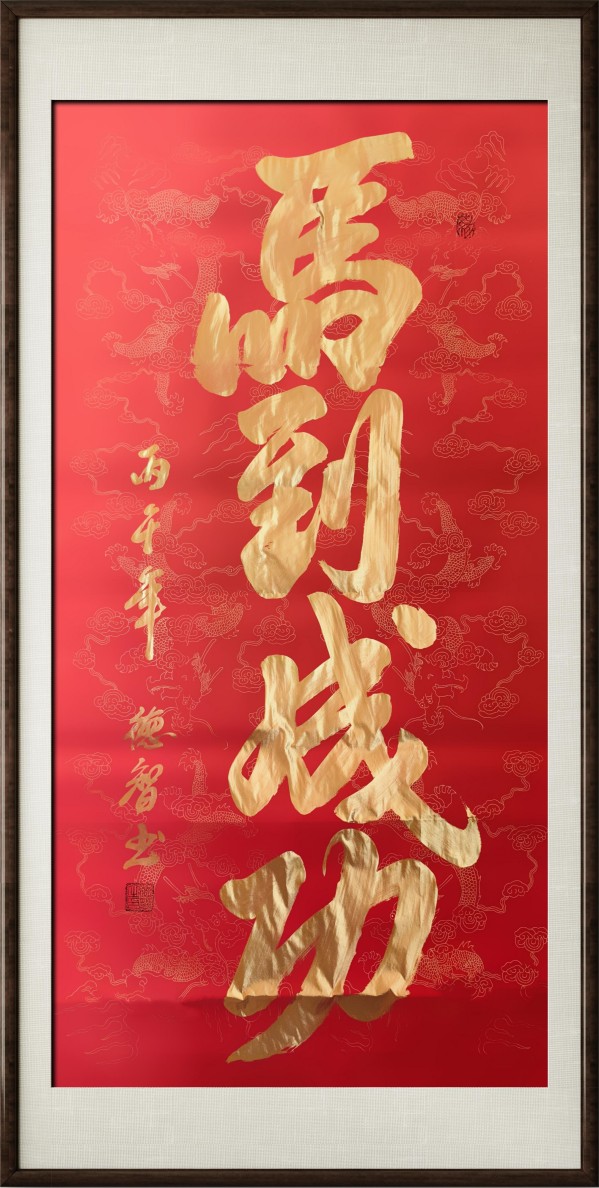 馬到成功
丙午年 德智书